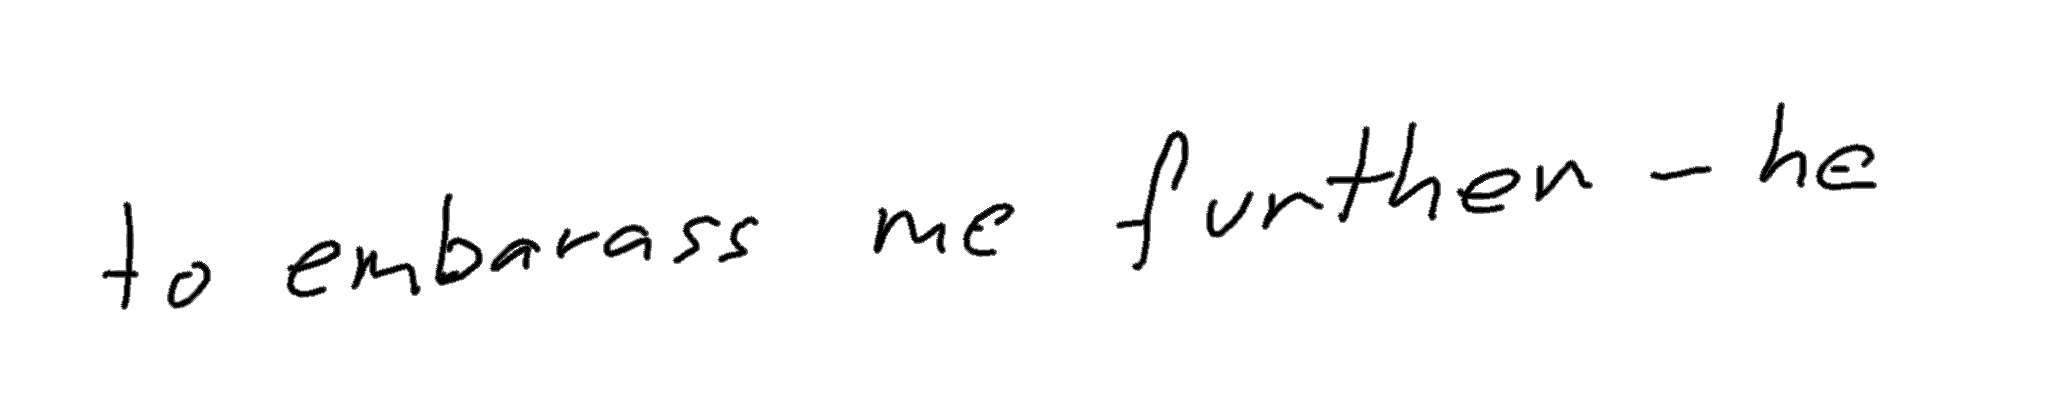 to embarass me further - he